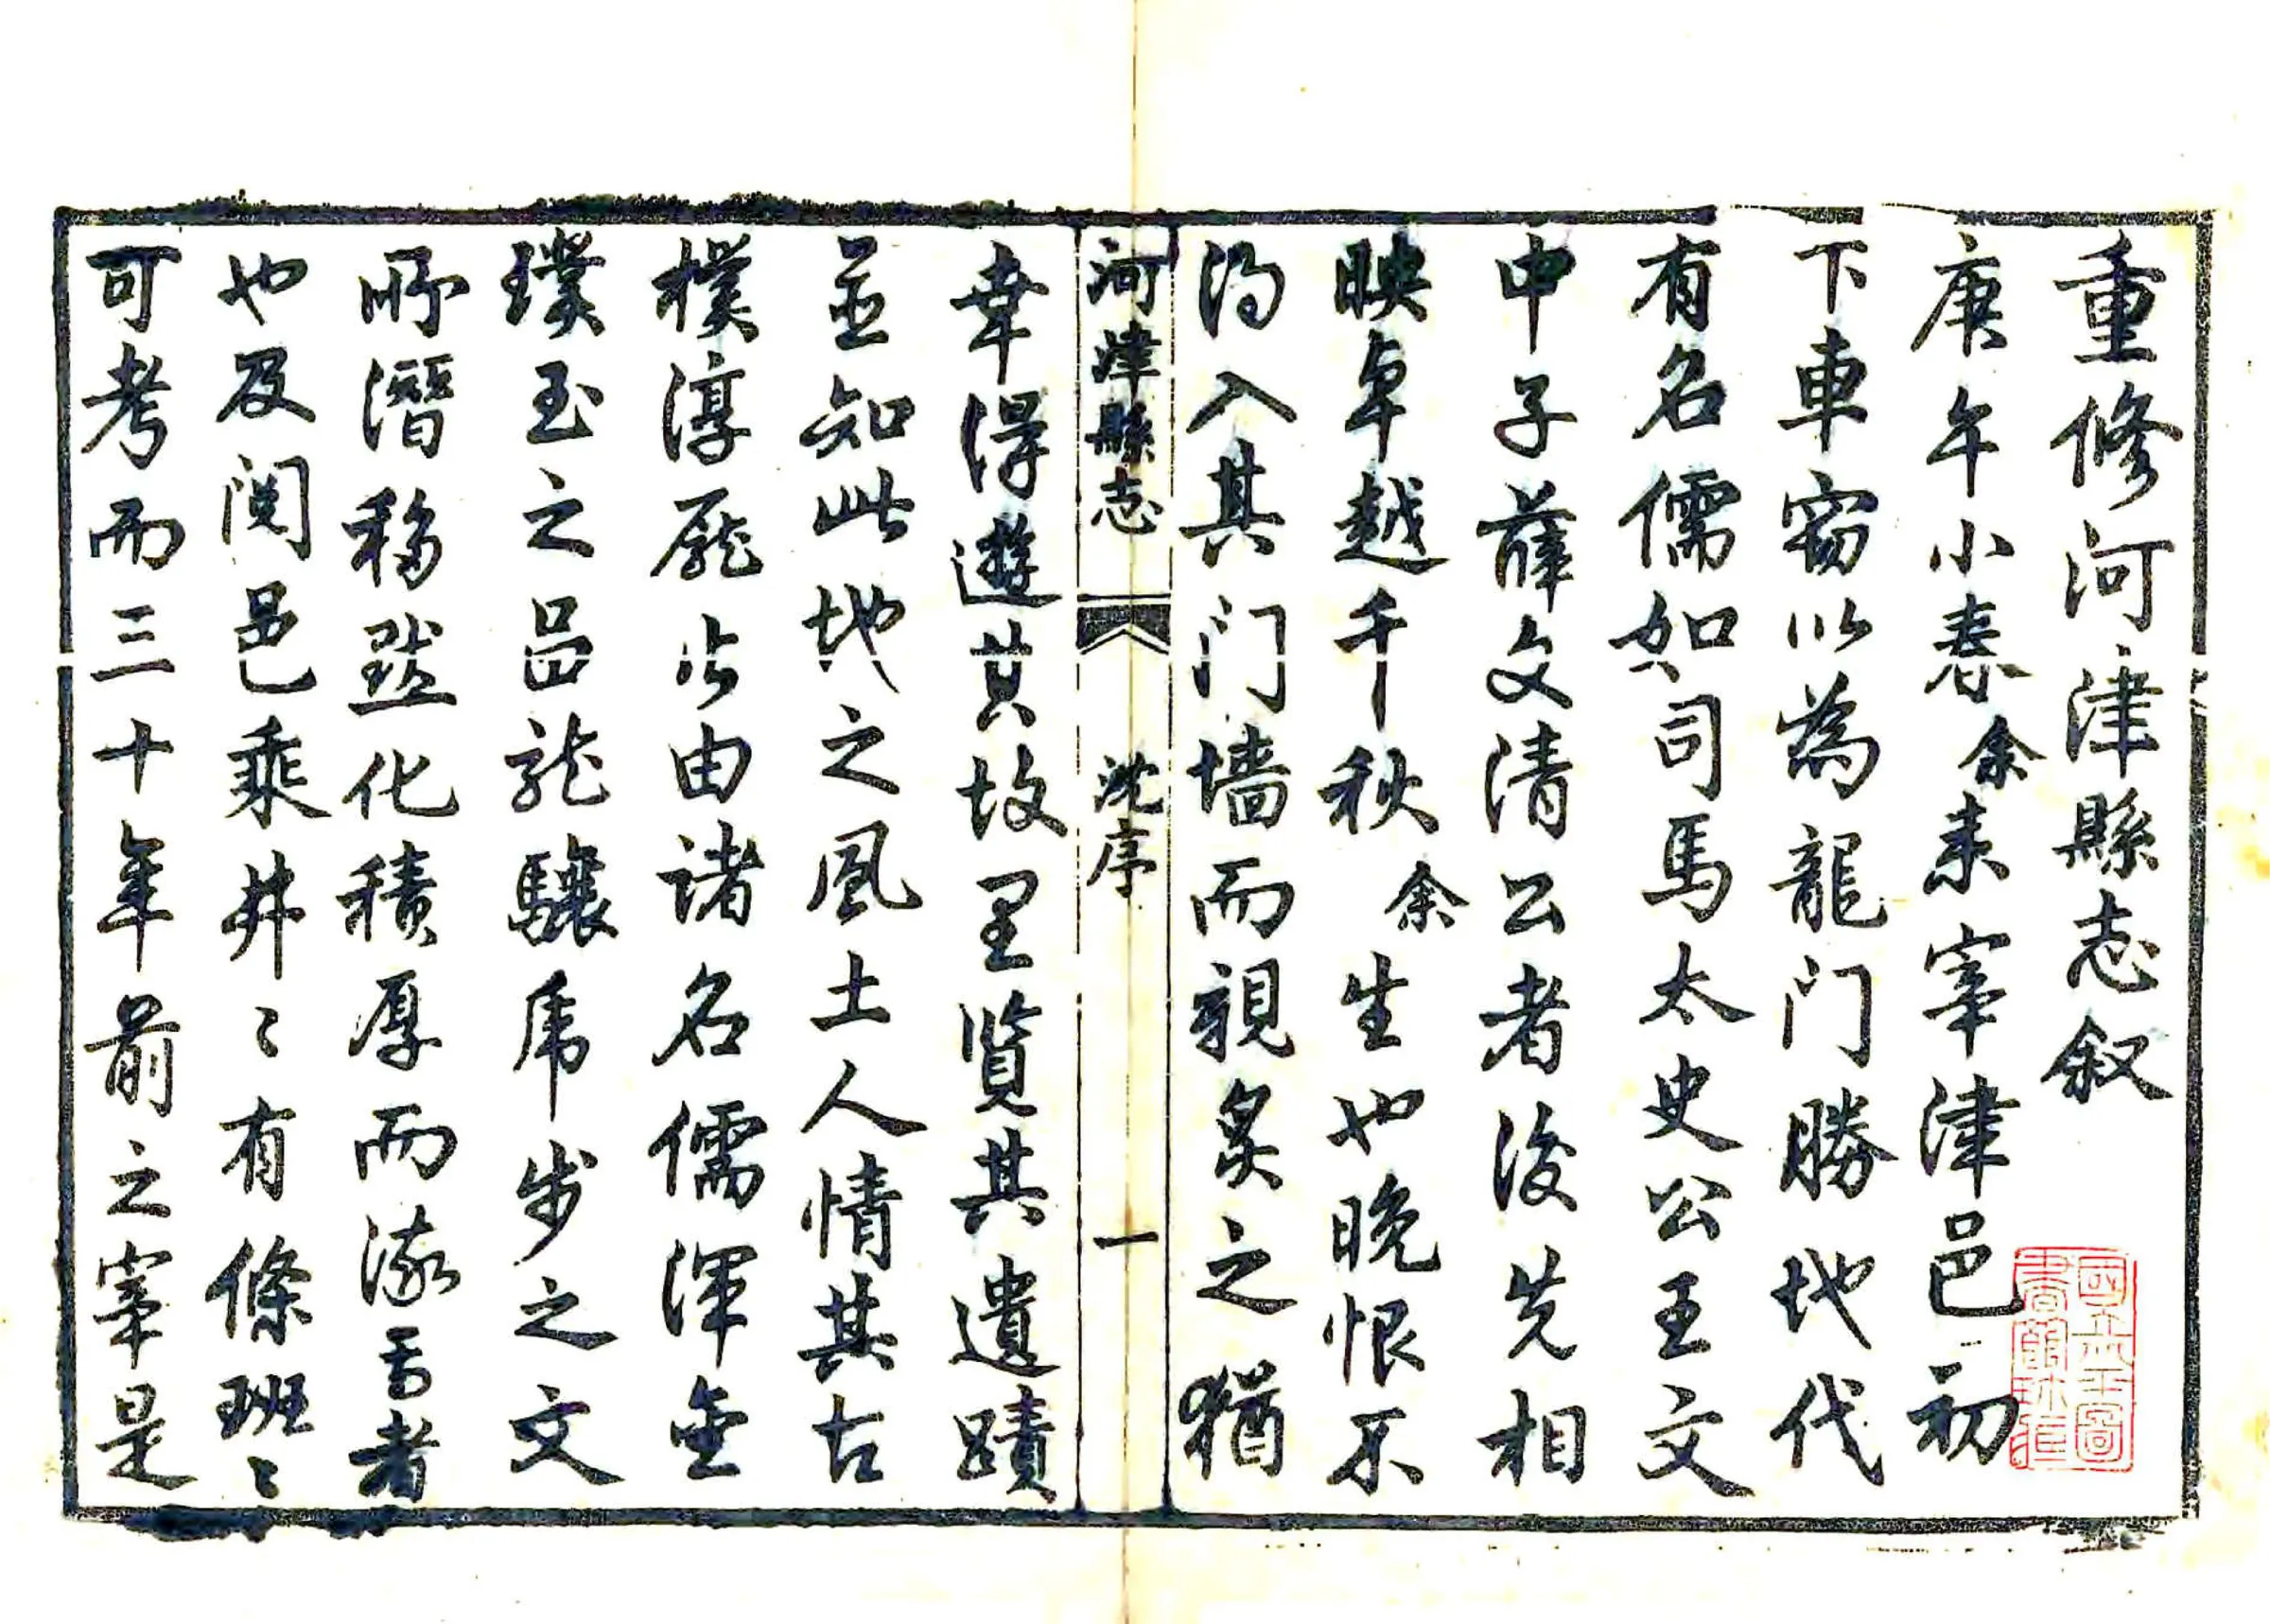 重修河津縣志叙
庚午小春余来宰津邑初
下車窃以為龍门勝地代
有名儒如司馬太史公王文
中子薛文清公者後先相
映卓越千秋余生也晚恨不
得入其门墙而親炙之猶
河津縣志 沈序 一
幸得遊其故里覧其遺蹟
並知此地之風土人情其古
樸淳厖皆由诸名儒渾金
璞玉之品龍驤虎步之文
所潛移默化積厚而流焉者
也及閲邑乘井〻有條班〻
可考而三十年前之宰是
國立北平圖書館珍藏